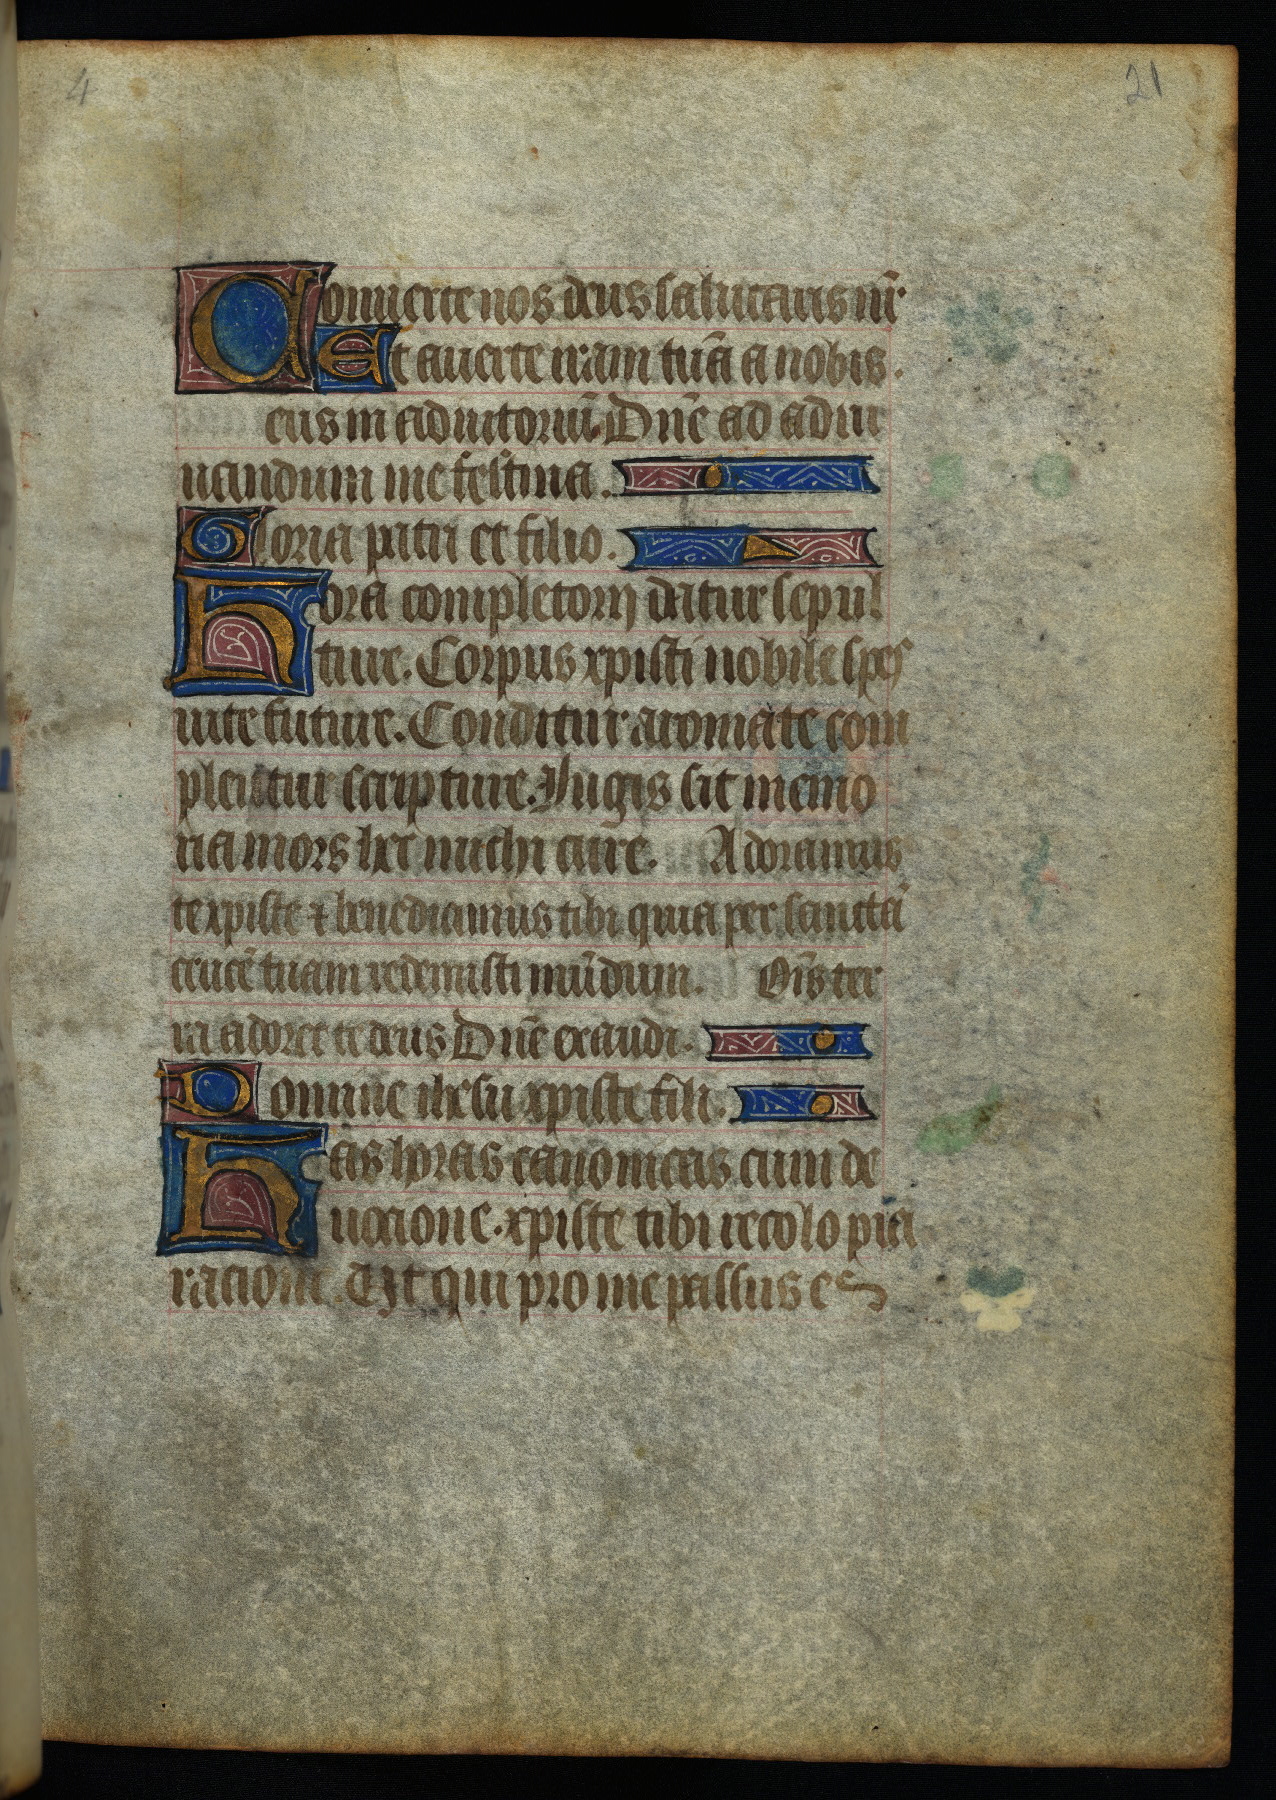 4 21
Conuerte nos deus salutaris nr̄.
Et auerte iram tuā a nobis.
eus in adiutoriū. Dne̅ ad adiu
uandum me festina.
Gloria patri et filio.
Hora completorij datur sepul
ture. Corpus xpisti nobile spes
uite future. Conditur aromate com
pleatur scripture. Iugis sit memo
ria mors hec michi cure. Adoramus
te xpiste ⁊ benedicimus tibi quia per sanctā
crucē tuam redemisti mūdum. Oīs ter
ra adoret te deus Dne̅ exaudi.
Domine ihesu xpiste fili.
Has horas canonicas cum de
uocione. xpiste tibi recolo pia
racione. Et qui pro me passus es